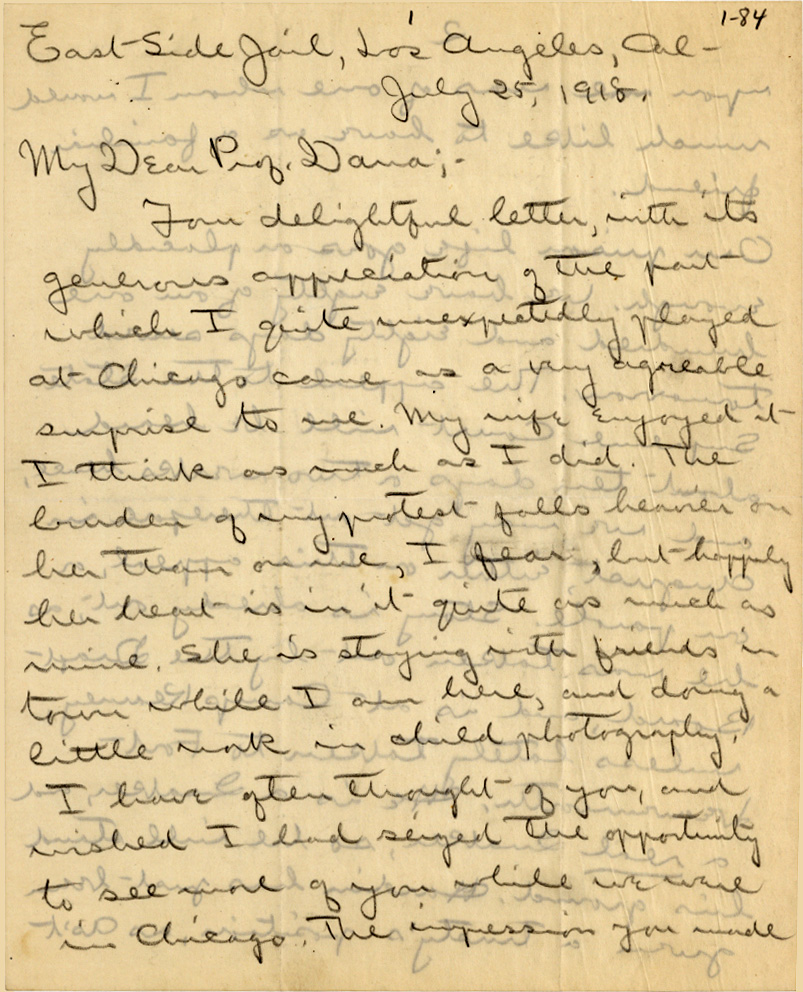 1
1-84
East-Side Jail, Los Angeles, Cal-
July 25, 1918.
My Dear Prof. Dana;-
Your delightful letter, with its
generous appreciation of the part
which I quite unexpectedly played
at Chicago came as a very agreeable
surprise to me. My wife enjoyed it
I think as much as I did. The
burden of my protest falls heavier on
her than on me, I fear, but happily
her heart is in it quite as much as
mine. She is staying with friends in
town while I am here, and doing a
little work in child photography.
I have often thought of you, and
wished I had seized the opportunity
to see more of you while we were
in Chicago. The impression you made